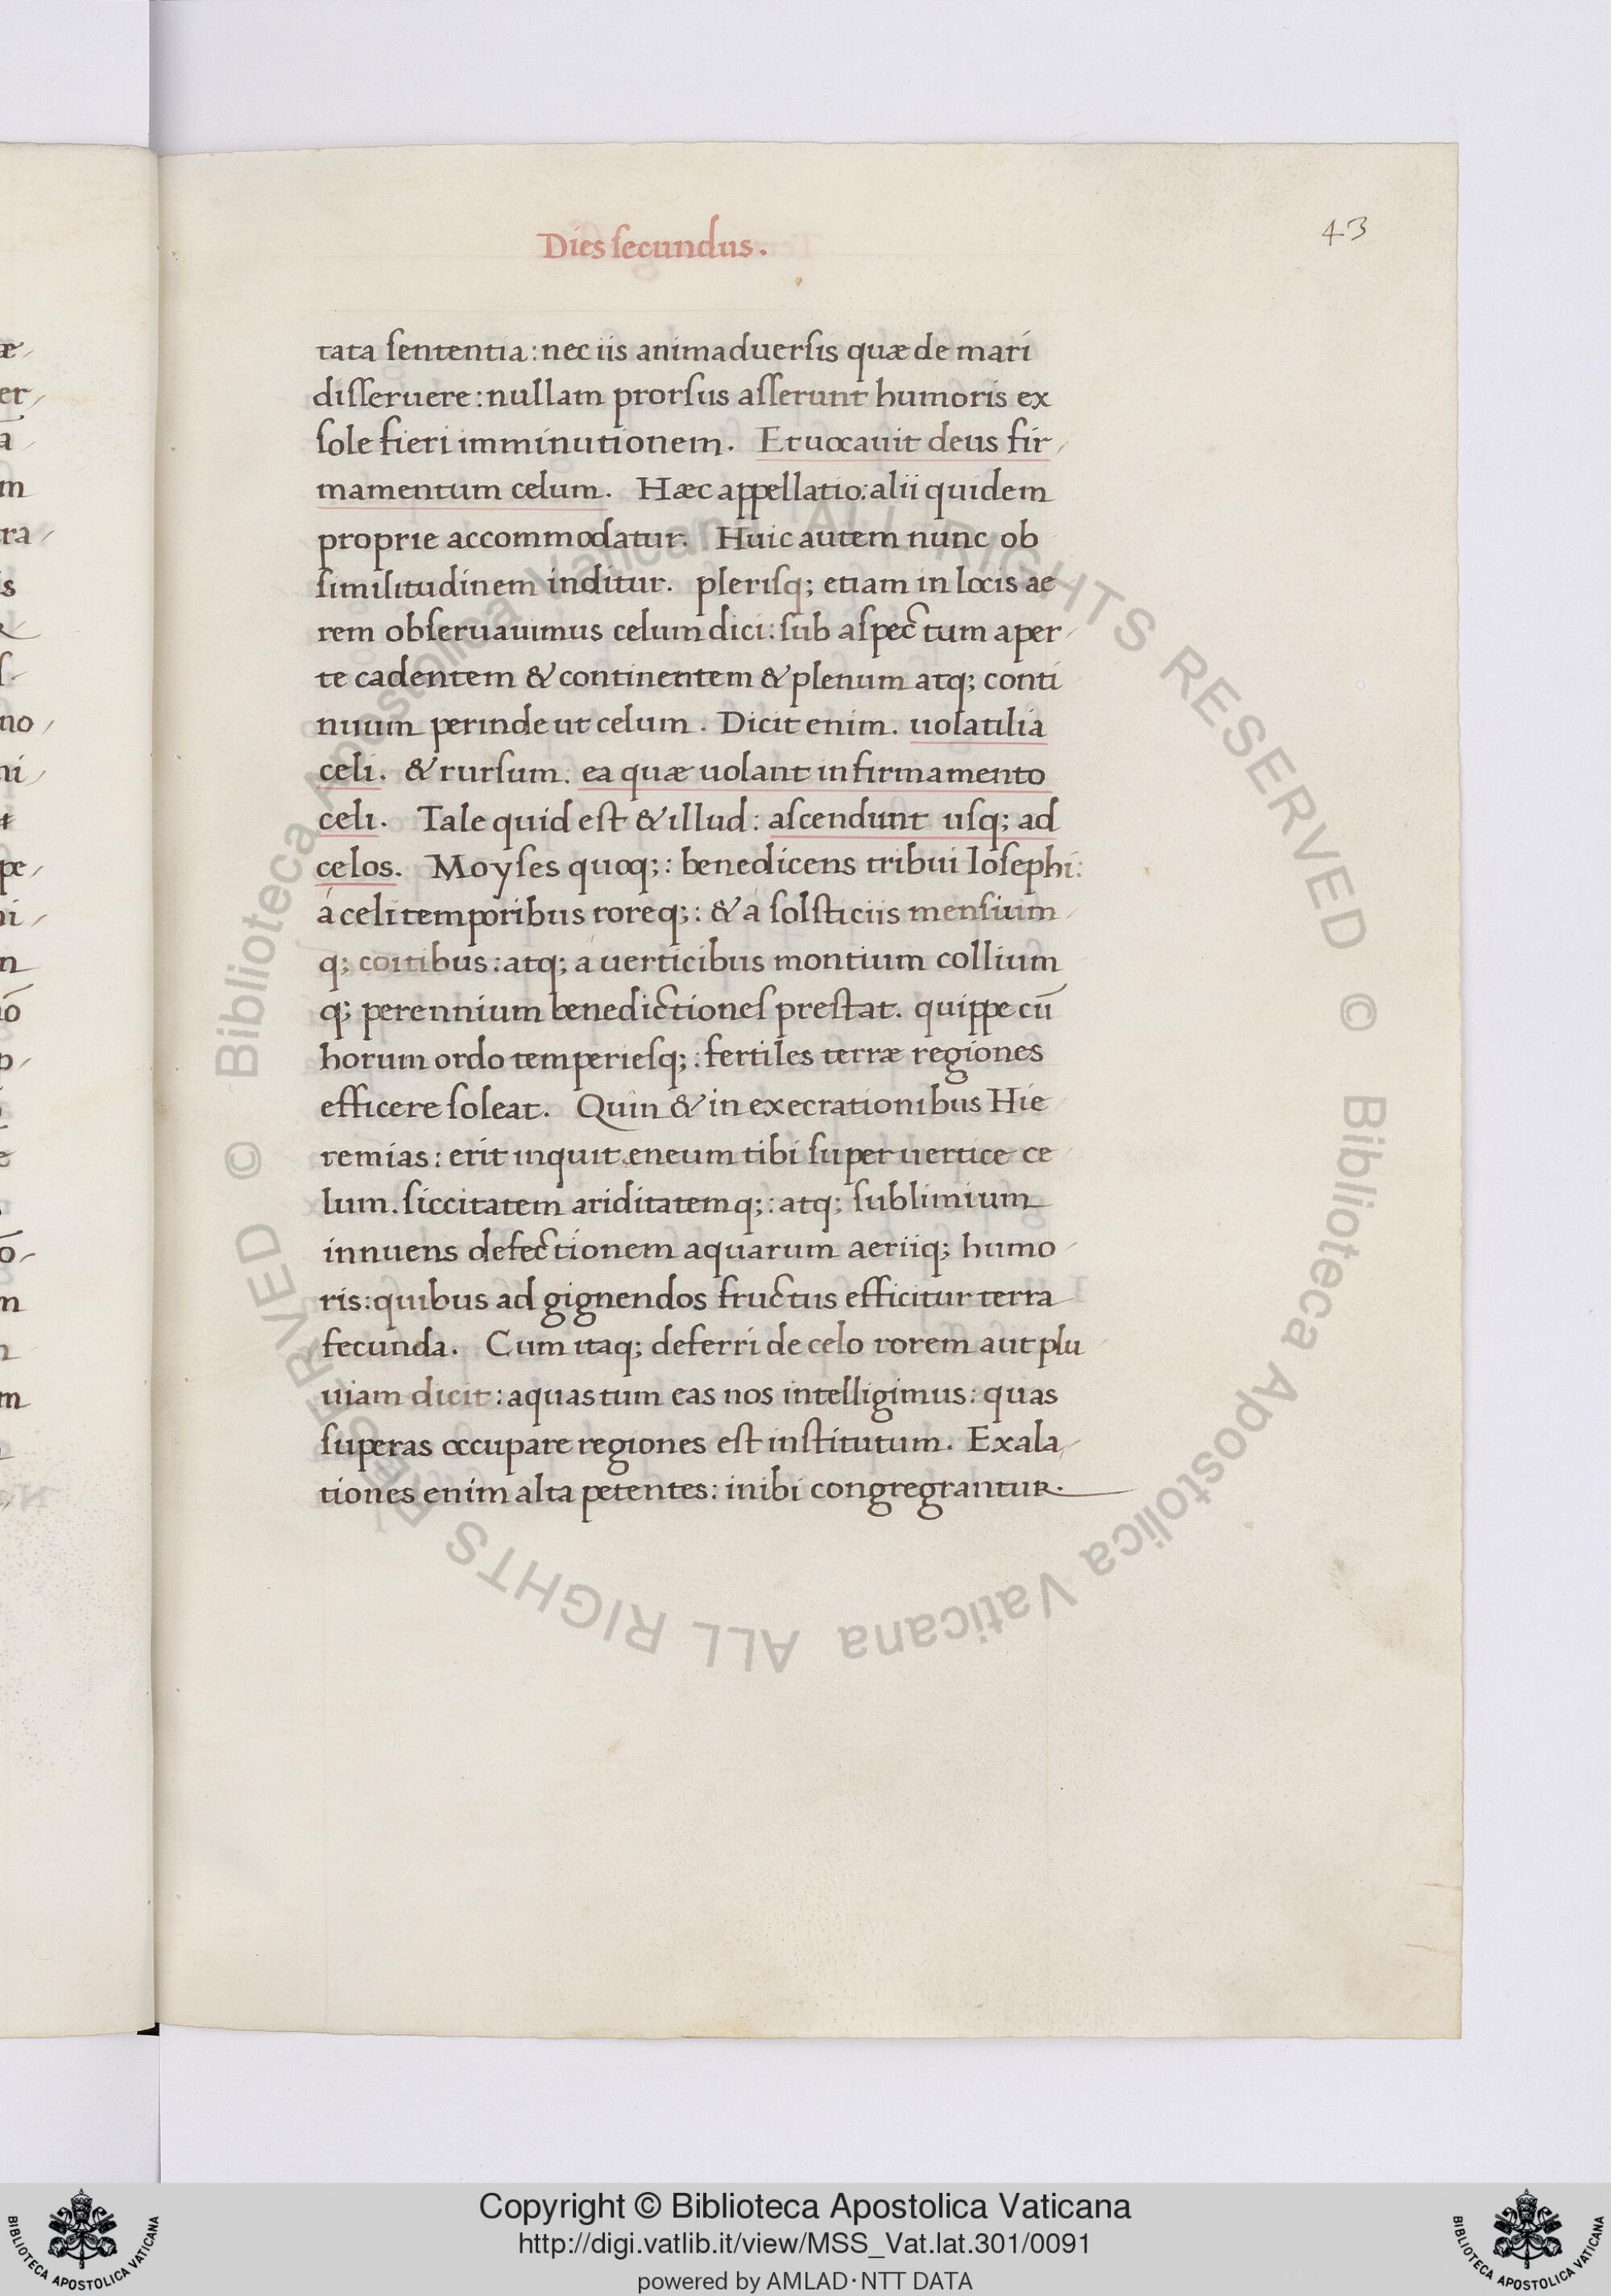 43
Dies ſecundus.
tata ſententia: nec iis animaduerſis quæ de mari
diſſeruere: nullam prorſus aſſerunt humoris ex
ſole fieri imminutionem. Et uocauit deus fir-
mamentum celum. Hæc appellatio: alii quidem
proprie accommodatur. Huic autem nunc ob
ſimilitudinem inditur. pleriſq; etiam in locis ae
rem obſeruauimus celum dici: ſub aſpectum aper-
te cadentem & continentem & plenum atq; conti
nuum perinde ut celum. Dicit enim. uolatilia
celi. & rurſum. ea quæ uolant in firmamento
celi. Tale quid eſt & illud: aſcendunt uſq; ad
celos. Moyſes quoq;: benedicens tribui Ioſephi:
á celi temporibus roreq;: & á ſolſticiis menſium-
q; coitibus: atq; á uerticibus montium collium
q; perennium benedictioneſ preſtat. quippe cū
horum ordo temperieſq;: fertiles terræ regiones
efficere ſoleat. Quin & in execrationibus Hie-
remias: erit inquit eneum tibi ſuper uertice ce-
lum. ſiccitatem ariditatemq;: atq; ſublimium
innuens defectionem aquarum aeriiq; humo-
ris: quibus ad gignendos fructus efficitur terra
fecunda. Cum itaq; deferri de celo rorem aut plu-
uiam dicit: aquas tum eas nos intelligimus: quas
ſuperas occupare regiones eſt inſtitutum. Exala-
tiones enim alta petentes: inibi congregrantur.
© Biblioteca Apostolica Vaticana ALL RIGHTS RESERVED
© Biblioteca Apostolica Vaticana ALL RIGHTS RESERVED
Copyright © Biblioteca Apostolica Vaticana
http://digi.vatlib.it/view/MSS_Vat.lat.301/0091
powered by AMLAD·NTT DATA
BIBLIOTECA APOSTOLICA VATICANA
BIBLIOTECA APOSTOLICA VATICANA